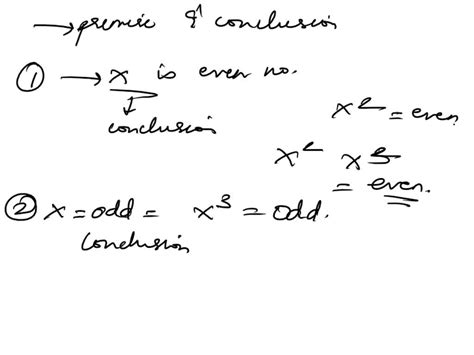 → premise & conclusion
① → x is even no.
↓
conclusion
x² = even
x² x³
= even.
② x = odd = x³ = odd.
conclusion